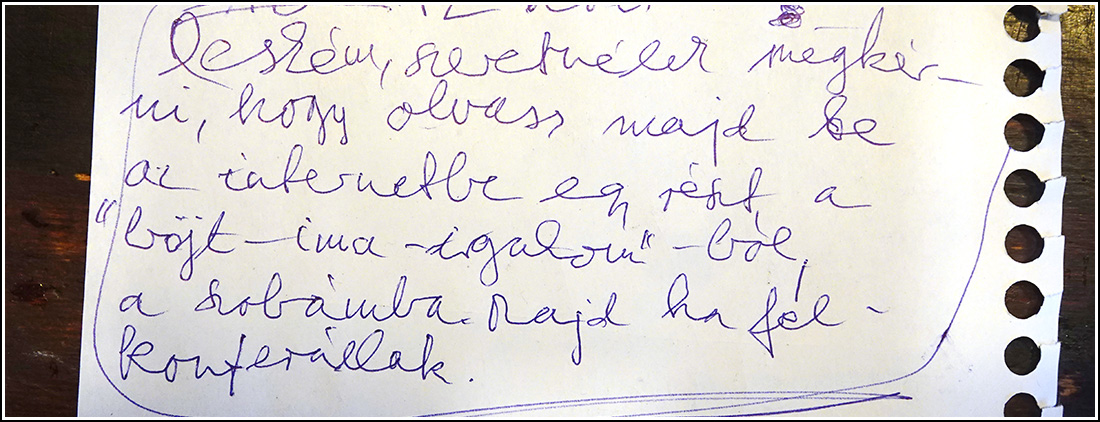 Leszém, szeretnélek megkér-
ni, hogy olvass majd be
az internetbe egy részt a
"böjt-ima-irgalom"-ból,
a szobámba. Majd ha fel-
konferállak.